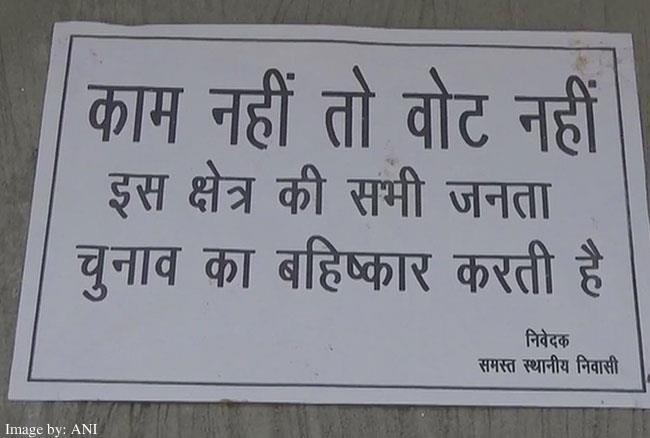 काम नहीं तो वोट नहीं
इस क्षेत्र की सभी जनता
चुनाव का बहिष्कार करती है
निवेदक
समस्त स्थानीय निवासी
Image by: ANI